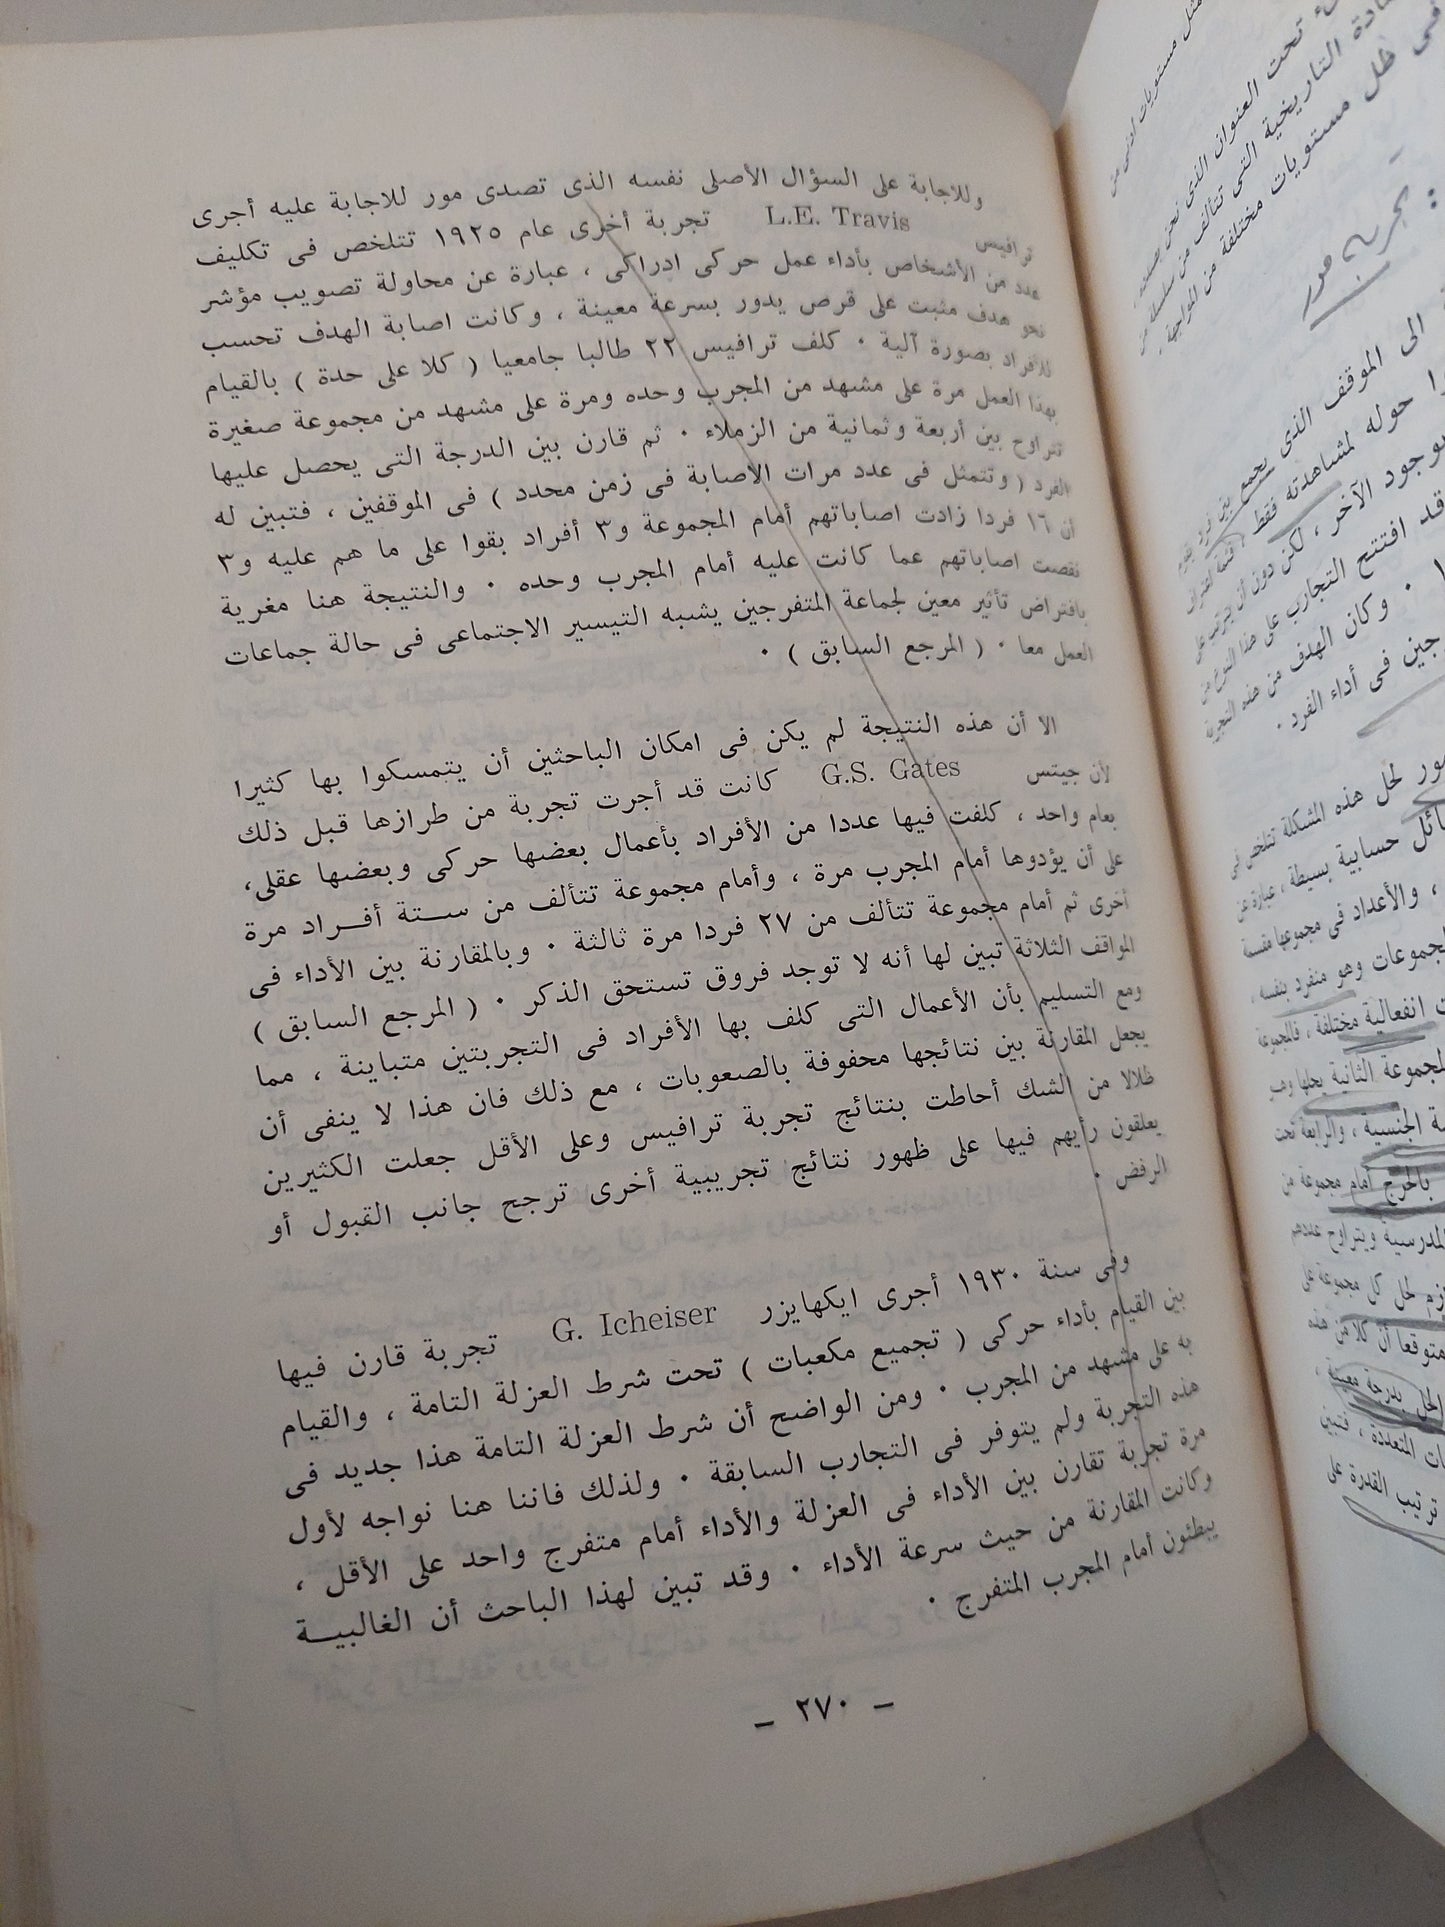 وللاجابة على السؤال الأصلى نفسه الذى تصدى مور للاجابة عليه أجرى
ترافيس L.E. Travis تجربة أخرى عام ١٩٢٥ تتلخص فى تكليف
عدد من الأشخاص بأداء عمل حركى ادراكى ، عبارة عن محاولة تصويب مؤشر
نحو هدف مثبت على قرص يدور بسرعة معينة ، وكانت اصابة الهدف تحسب
للأفراد بصورة آلية . كلف ترافيس ٢٢ طالبا جامعيا ( كلا على حدة ) بالقيام
بهذا العمل مرة على مشهد من المجرب وحده ومرة على مشهد من مجموعة صغيرة
تتراوح بين أربعة وثمانية من الزملاء . ثم قارن بين الدرجة التى يحصل عليها
الفرد ( وتتمثل فى عدد مرات الاصابة فى زمن محدد ) فى الموقفين ، فتبين له
أن ١٦ فردا زادت اصاباتهم أمام المجموعة و٣ أفراد بقوا على ما هم عليه و٣
نقصت اصاباتهم عما كانت عليه أمام المجرب وحده . والنتيجة هنا مغرية
بافتراض تأثير معين لجماعة المتفرجين يشبه التيسير الاجتماعى فى حالة جماعات
العمل معا . ( المرجع السابق ) .
الا أن هذه النتيجة لم يكن فى امكان الباحثين أن يتمسكوا بها كثيرا
لأن جيتس G.S. Gates كانت قد أجرت تجربة من طرازها قبل ذلك
بعام واحد ، كلفت فيها عددا من الأفراد بأعمال بعضها حركى وبعضها عقلى،
على أن يؤدوها أمام المجرب مرة ، وأمام مجموعة تتألف من ستة أفراد مرة
أخرى ثم أمام مجموعة تتألف من ٢٧ فردا مرة ثالثة . وبالمقارنة بين الأداء فى
المواقف الثلاثة تبين لها أنه لا توجد فروق تستحق الذكر . ( المرجع السابق )
ومع التسليم بأن الأعمال التى كلف بها الأفراد فى التجربتين متباينة ، مما
يجعل المقارنة بين نتائجها محفوفة بالصعوبات ، مع ذلك فان هذا لا ينفى أن
ظلالا من الشك أحاطت بنتائج تجربة ترافيس وعلى الأقل جعلت الكثيرين
يعلقون رأيهم فيها على ظهور نتائج تجريبية أخرى ترجح جانب القبول أو
الرفض .
وفى سنة ١٩٣٠ أجرى ايكهايزر G. Icheiser تجربة قارن فيها
بين القيام بأداء حركى ( تجميع مكعبات ) تحت شرط العزلة التامة ، والقيام
به على مشهد من المجرب . ومن الواضح أن شرط العزلة التامة هذا جديد فى
هذه التجربة ولم يتوفر فى التجارب السابقة . ولذلك فاننا هنا نواجه لأول
مرة تجربة تقارن بين الأداء فى العزلة والأداء أمام متفرج واحد على الأقل ،
وكانت المقارنة من حيث سرعة الأداء . وقد تبين لهذا الباحث أن الغالبية
يبطئون أمام المجرب المتفرج .
– ٢٧٠ –
تحت العنوان الذى نحن بصدده
التاريخية التى تتألف من سلسلة من
فى ظل مستويات مختلفة من المواجهة .
تجربة مور :
الى الموقف الذى يجمع بين فرد يقوم
حوله لمشاهدته فقط
بوجود الآخر ، لكن دون أن يترتب على
قد افتتح التجارب على هذا النوع من
. وكان الهدف من هذه التجربة
فى أداء الفرد .
لحل هذه المشكلة تتلخص فى
حسابية بسيطة ، عبارة عن
، والأعداد فى مجموعها مقسمة
وهو منفرد بنفسه ،
انفعالية مختلفة ، فالمجموعة
الثانية يحلها وهو
الجنسية ، والرابعة تحت
بالحرج أمام مجموعة من
ويتراوح عددهم
لحل كل مجموعة على
متوقعا أن كلا من هذه
بدرجة معينة ،
المتعددة ، فتبين
ترتيب القدرة على